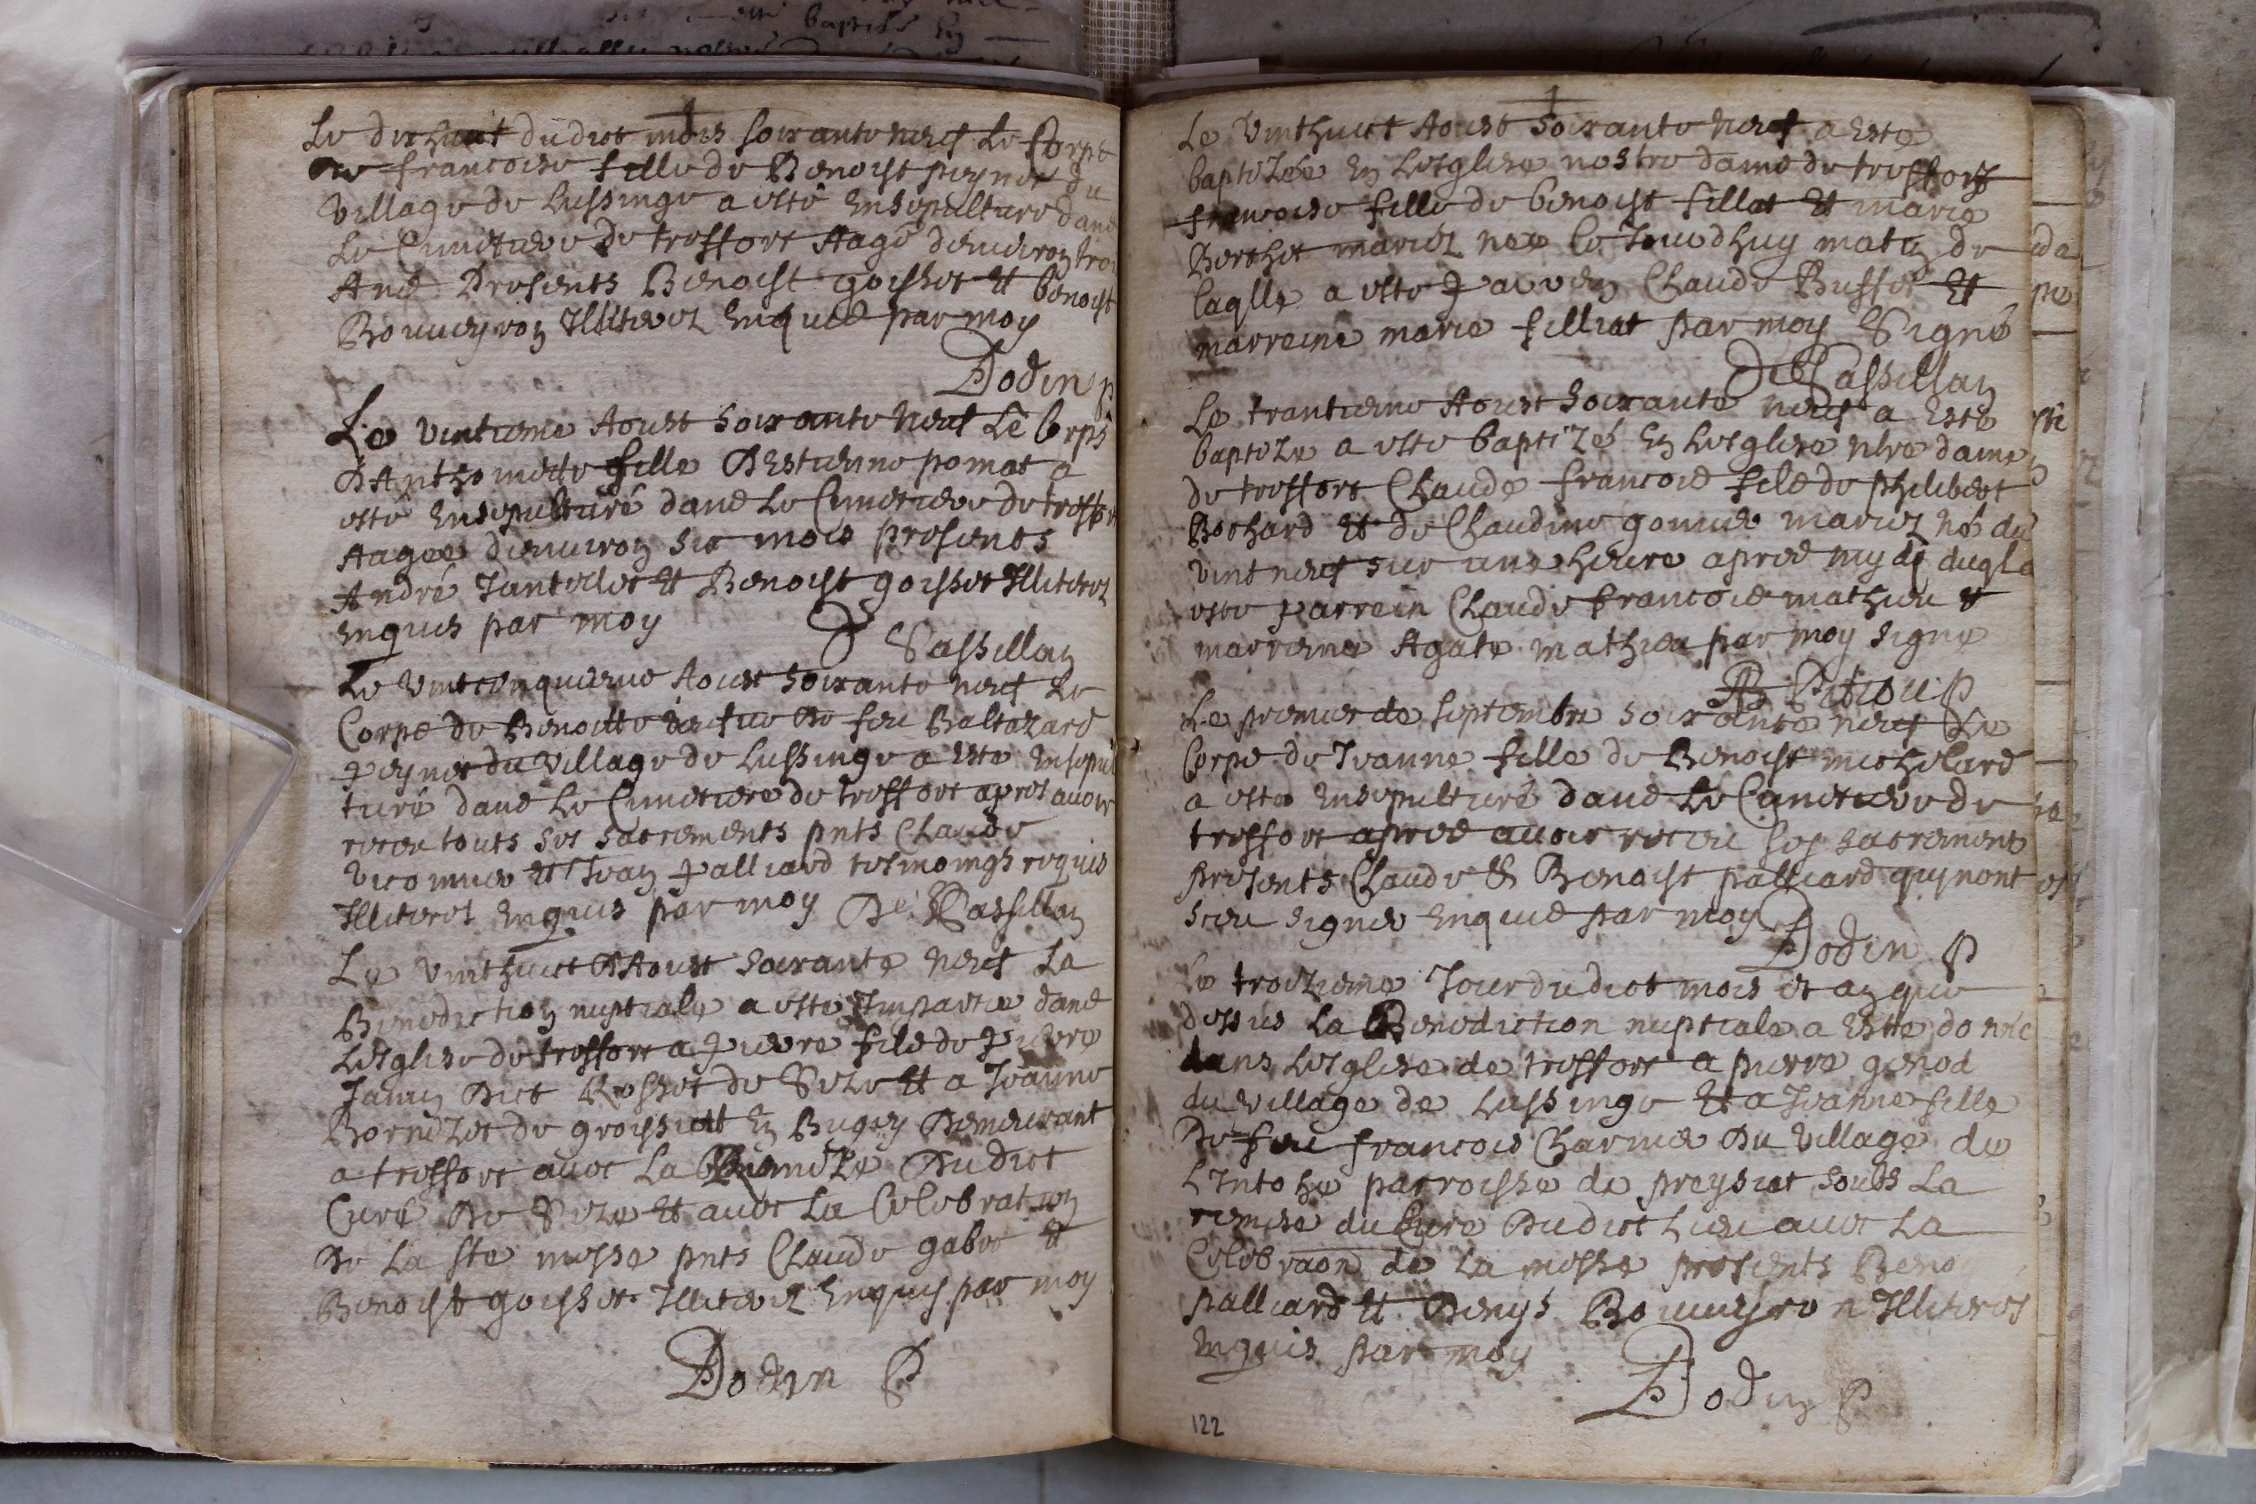 Le dixhuict dudict mois soixante neuf Le Corps
de francoise fille de Benoist peynet du
village de Lussinge a esté Ensepulturé dans
Le Cimetiere de treffort Aagé denuiron trois
Ans Presents Benoist goisset et benoist
Bouueyron Illiterez Enquis par moy
Dodin p
Le vintieme Aoust soixante neuf Le Corps
D'Anthoinette fille D'Estienne pomat a
esté Ensepulturé dans Le Cimetiere de treffort
Aagee denuiron six mois presents
André Jantellet et Benoist goisset Illiterez
enquis par moy
D Sassillan
Le vintcinquieme Aoust soixante neuf Le
Corps de Benoitte de feu Baltazard
peynet du village de Lussinge a esté Ensepul
turé dans Le Cimetiere de treffort apres auoir
receu touts ses sacrements pnts Claude
et Jean palliard tesmoings requis
Illiteres enquis par moy De Sassillan
Le vinthuict D'Aoust soixante neuf La
Benediction nuptiale a esté Impartie dans
Lesglise de treffort a pierre fils de pierre
Janin Dict Rosset de et a Jeanne
de en Bugey Demeurant
a treffort auec La Remize Dudict
Curé De et auec La Celebration
De La ste messe pnts Claude gabet et
Benoist goisset Illiterez Enquis par moy
Dodin P
Le vinthuict Aoust soixante neuf a Esté
baptizée En Lesglise nostre dame de treffort
francoise fille de benoist fillat Et marie
Berthet mariez nee le Jourdhuy matin de
laqlle a esté parrein Claude Buffet Et
marreine marie filliat par moy Signé
De Sassillan
Le trantieme Aoust soixante neuf a Esté
baptize a esté baptizé En Lesglise nre dame
de treffort Claude francois fils de philibert
Bochard et de Claudine mariez né du
vint neuf sur une heure apres mydi duql a
esté parrein Claude francois mathieu et
marreine Agate mathieu par moy signé
P
Le premier de septembre soixante neuf Le
Corps de Jeanne fille de Benoist michelard
a esté Ensepulturé dans Le Cimetiere de
treffort apres auoir receu ses sacrements
presents Claude & Benoist palliard qui nont
sceu signer enquis par moy
Dodin P
Le troizieme Jour dudict mois et an que
dessus La Benediction nuptiale a Esté donné
dans Lesglise de treffort a pierre genod
du village de Lussinge et a Jeanne fille
De feu francois Charnier Du village de
parroisse de preysiat soubs La
remise du Curé Dudict Lieu auec La
Celebraon de La messe presents Benoist
palliard et Denys Bouueyron Illiteres
enquis par moy
Dodin P
122